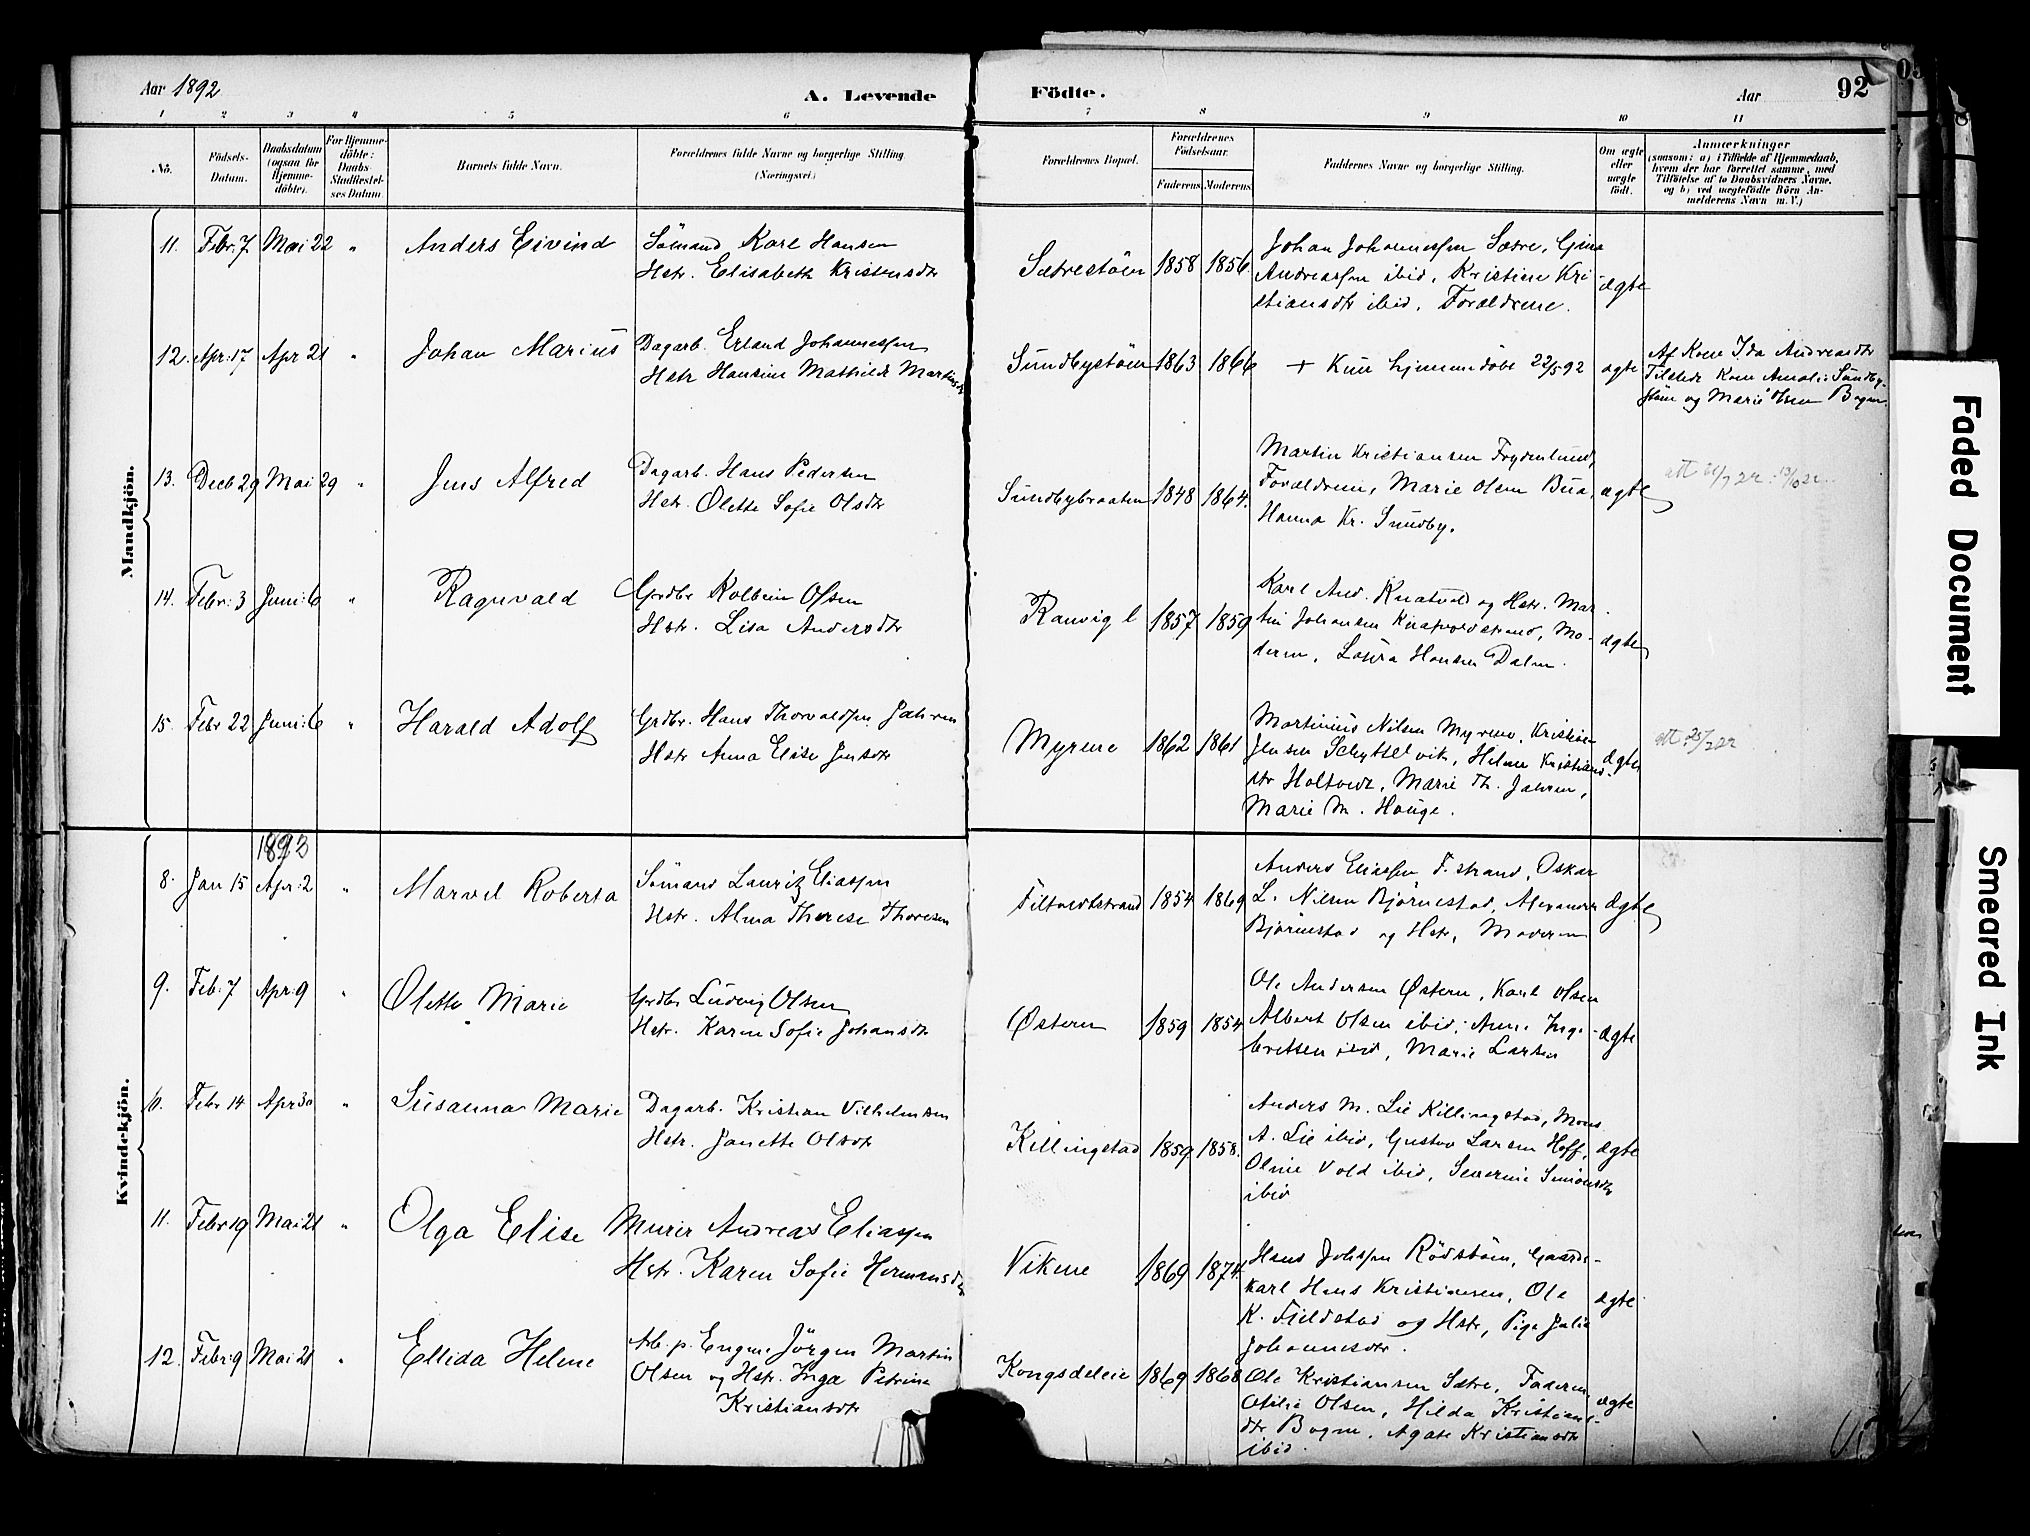 Aar 1892
A. Levende
Födte.
Aar
92
1 2 3 4 5 6 7 8 9 10 11
No.
Födsels-Datum.
Daabsdatum (ogsaa for Hjemme-döbte).
For Hjemme-döbte: Daabs-Stadfæstel-ses Datum
Barnets fulde Navn.
Forældrenes fulde Navne og borgerlige Stilling. (Næringsvei.)
Forældrenes Bopæl.
Forældrenes Födselsaar.
Faderens Moderens
Faddernes Navne og borgerlige Stilling.
Om ægte eller uægte födt.
Anmærkninger
(saasom: a) i Tilfælde af Hjemmedaab,
hvem der har forrettet samme, med
Tilföielse af to Daabsvidners Navne,
og b) ved uægtefödte Börn An-
melderens Navn m. V.)
Mandkjön.
11. Febr. 7 Mai 22 " Anders Eivind
Sömand Karl Hansen
Hstr. Elisabeth Kristensdtr
Sætrestöen 1858 1856
Johan Johannessen Sætre, Gina
Andreassen ibid, Kristine Kri
stiansdtr ibid, Forældrene.
ægte
12. Apr: 17 Apr 21 " Johan Marius
Dagarb. Erland Johannessen
Hstr Hansine Mathilde Martinsdtr
Sundbystöen 1863 1866
+ Kun hjemmedöbt 22/5 92
ægte
Af Kone Ida Andreasdtr
Tilstede Kone Amalie Sundby-
stöen og Marie Olsen Bogen.
13. Decb 29 Mai 29 " Jens Alfred
Dagarb. Hans Pedersen
Hstr. Olette Sofie Olsdtr
Sundbybraaten 1848 1864.
Martin Kristiansen Frydenlund,
Forældrene, Marie Olsen Bua,
Hanna Kr. Sundby.
ægte
14. Febr: 3 Juni: 6 " Ragnvald
Grdbr Kolbein Olsen
Hstr. Lisa Andersdtr
Ranvig l 1857 1859
Karl And. Knatvold og Hstr. Mar-
tin Johansen Knatvoldstrand, Mo-
deren, Laura Hansen Dalen.
ægte
15. Febr 22 Juni: 6 " Harald Adolf
Grdbr. Hans Thorvaldsen Jahren
Hstr Anna Elise Jensdtr
Myrene 1862 1861
Martinius Nilsen Myrene, Kristian
Jensen Schyttelvik, Helene Kristians-
dtr Holtvedt, Marie Th. Jahren,
Marie M. Hauge.
ægte
att 25/2 22
Kvindekjön.
1893
8. Jan 15 Apr: 2 " Marvel Roberta
Sömand Lauritz Eliassen
Hstr. Alma Therese Thoresen
Filtvedtstrand 1854 1869
Anders Eliassen F. strand, Oskar
L. Nilsen Björnestad, Alexander
Björnestad og Hstr, Moderen
ægte
9. Feb: 7 Apr: 9 " Olette Marie
Grdbr Ludvig Olsen
Hstr. Karen Sofie Johansdtr
Østern 1859 1854
Ole Andersen Østern, Karl Olsen
Albert Olsen ibid, Anne Inge-
bretsen ibid, Marie Larsen
ægte
10. Febr 14 Apr 30 " Susanna Marie
Dagarb. Kristian Vilhelmsen
Hstr. Janette Olsdtr
Killingstad 1859 1858.
Anders M. Lie Killingstad, Mons
A. Lie ibid, Gustav Larsen Hoff,
Oline Vold ibid, Severine Simonsdtr
ibid
ægte
11. Febr 19 Mai 21 " Olga Elise
Murer Andreas Eliassen
Hstr. Karen Sofie Hermansdtr
Vikene 1869 1874.
Hans Johssen Rödstöen, Gaards-
karl Hans Kristiansen, Ole
K. Fjeldstad og Hstr, Pige Julie
Johannesdtr.
ægte
12. Febr: 9 Mai 21 " Ellida Helene
Arb. p. Engene Jörgen Martin
Olsen og Hstr. Inga Petrine
Kristiansdtr
Kongsdeleie 1869 1868
Ole Kristiansen Sætre, Faderen,
Otilia Olsen, Hilda Kristians-
dtr Bogen, Agate Kristiansdtr
ibid.
ægte
Faded Document
Smeared Ink